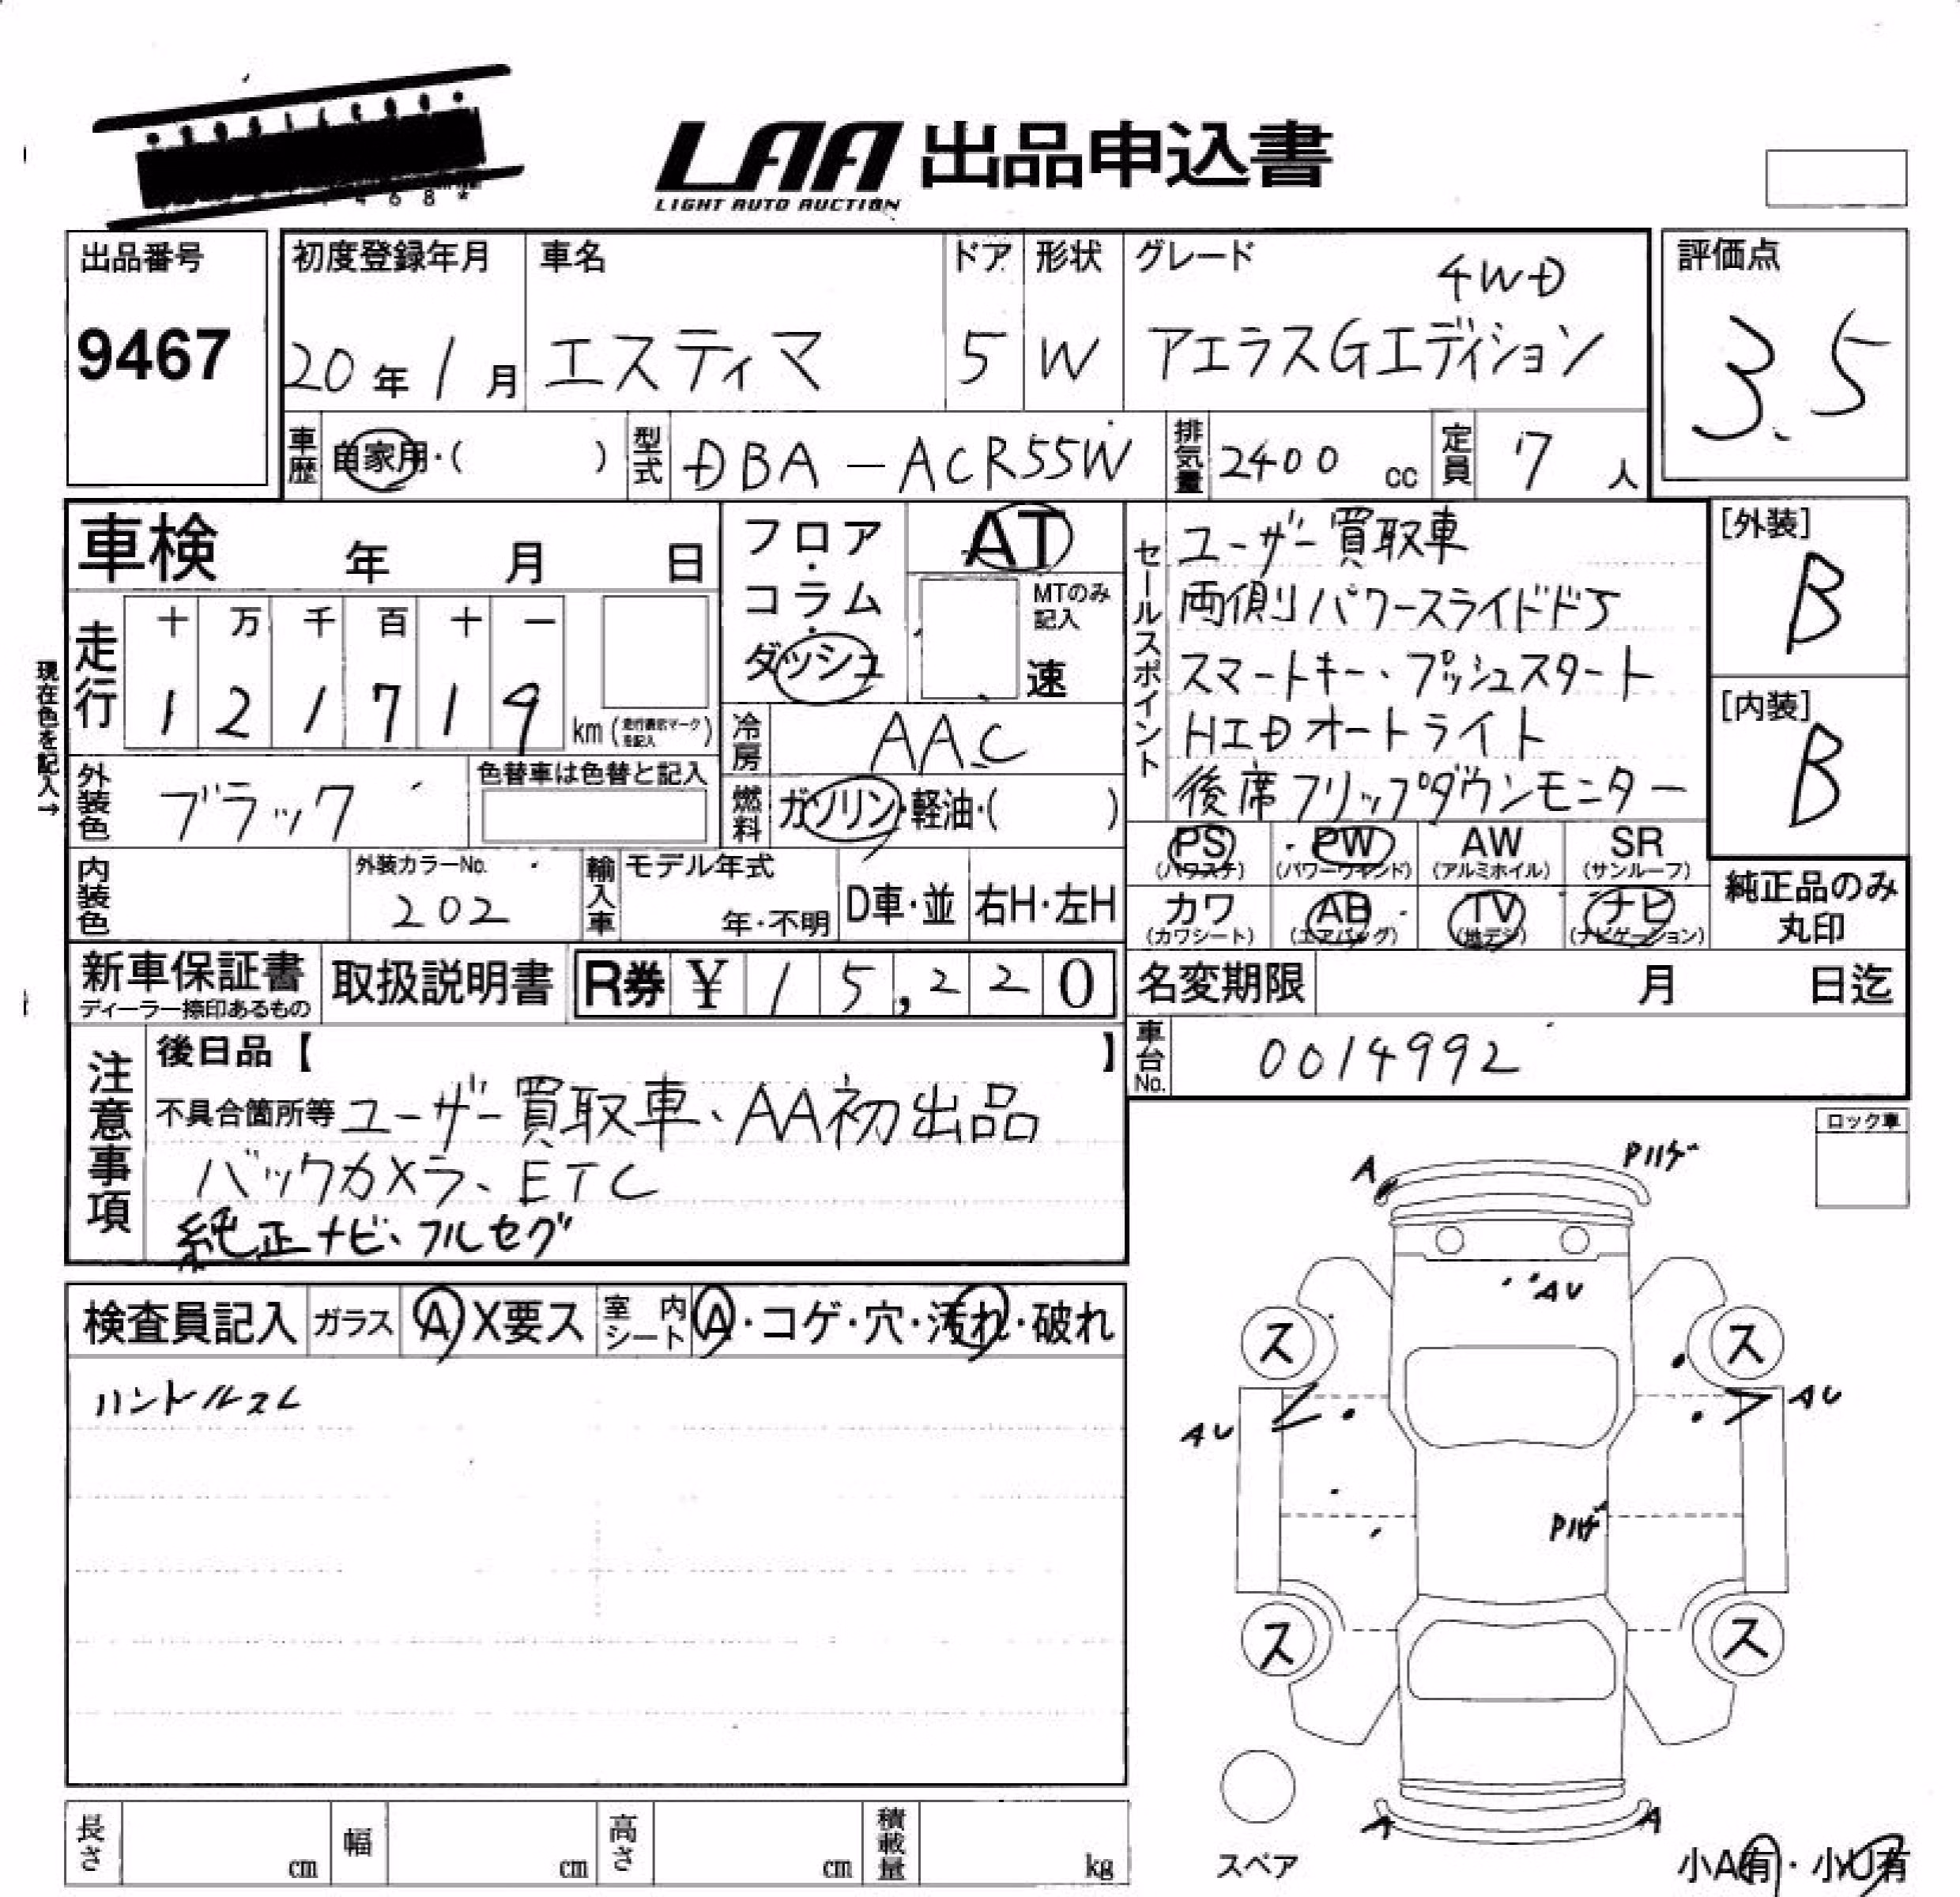 468*
LAA 出品申込書
LIGHT AUTO AUCTION
出品番号
9467
初度登録年月
20年1月
車名
エスティマ
ドア
5
形状
W
グレード
4WD
アエラスGエディション
評価点
3.5
車歴
自家用・( )
型式
DBA-ACR55W
排気量
2400 cc
定員
7人
車検 年 月 日
走行
十 万 千 百 十 一
1 2 1 7 1 9
km (走行表示マークを記入)
現在色を記入→
外装色
ブラック
色替車は色替と記入
内装色
外装カラーNo.
202
輸入車
モデル年式
年・不明
D車・並
右H・左H
フロア・コラム・ダッシュ
AT
MTのみ記入
速
冷房
AAC
燃料
ガソリン・軽油・( )
セールスポイント
ユーザー買取車
両側パワースライドドア
スマートキー、プッシュスタート
HIDオートライト
後席フリップダウンモニター
[外装]
B
[内装]
B
PS (パワステ)
PW (パワーウインド)
AW (アルミホイル)
SR (サンルーフ)
カワ (カワシート)
AB (エアバッグ)
TV (地デジ)
ナビ (ナビゲーション)
純正品のみ
丸印
新車保証書
ディーラー捺印あるもの
取扱説明書
R券 ¥ 15,220
名変期限 月 日迄
車台No.
0014992
注意事項
後日品【 】
不具合箇所等 ユーザー買取車、AA初出品
バックカメラ、ETC
純正ナビ、フルセグ
ロック車
検査員記入
ガラス
A X要ス
室内シート
A・コゲ・穴・汚れ・破れ
ハンドルスレ
A
Pハゲ
AU
ス
ス
AU
AU
Pハゲ
ス
ス
A
A
スペア
小A有・小U有
長さ cm
幅 cm
高さ cm
積載量 kg